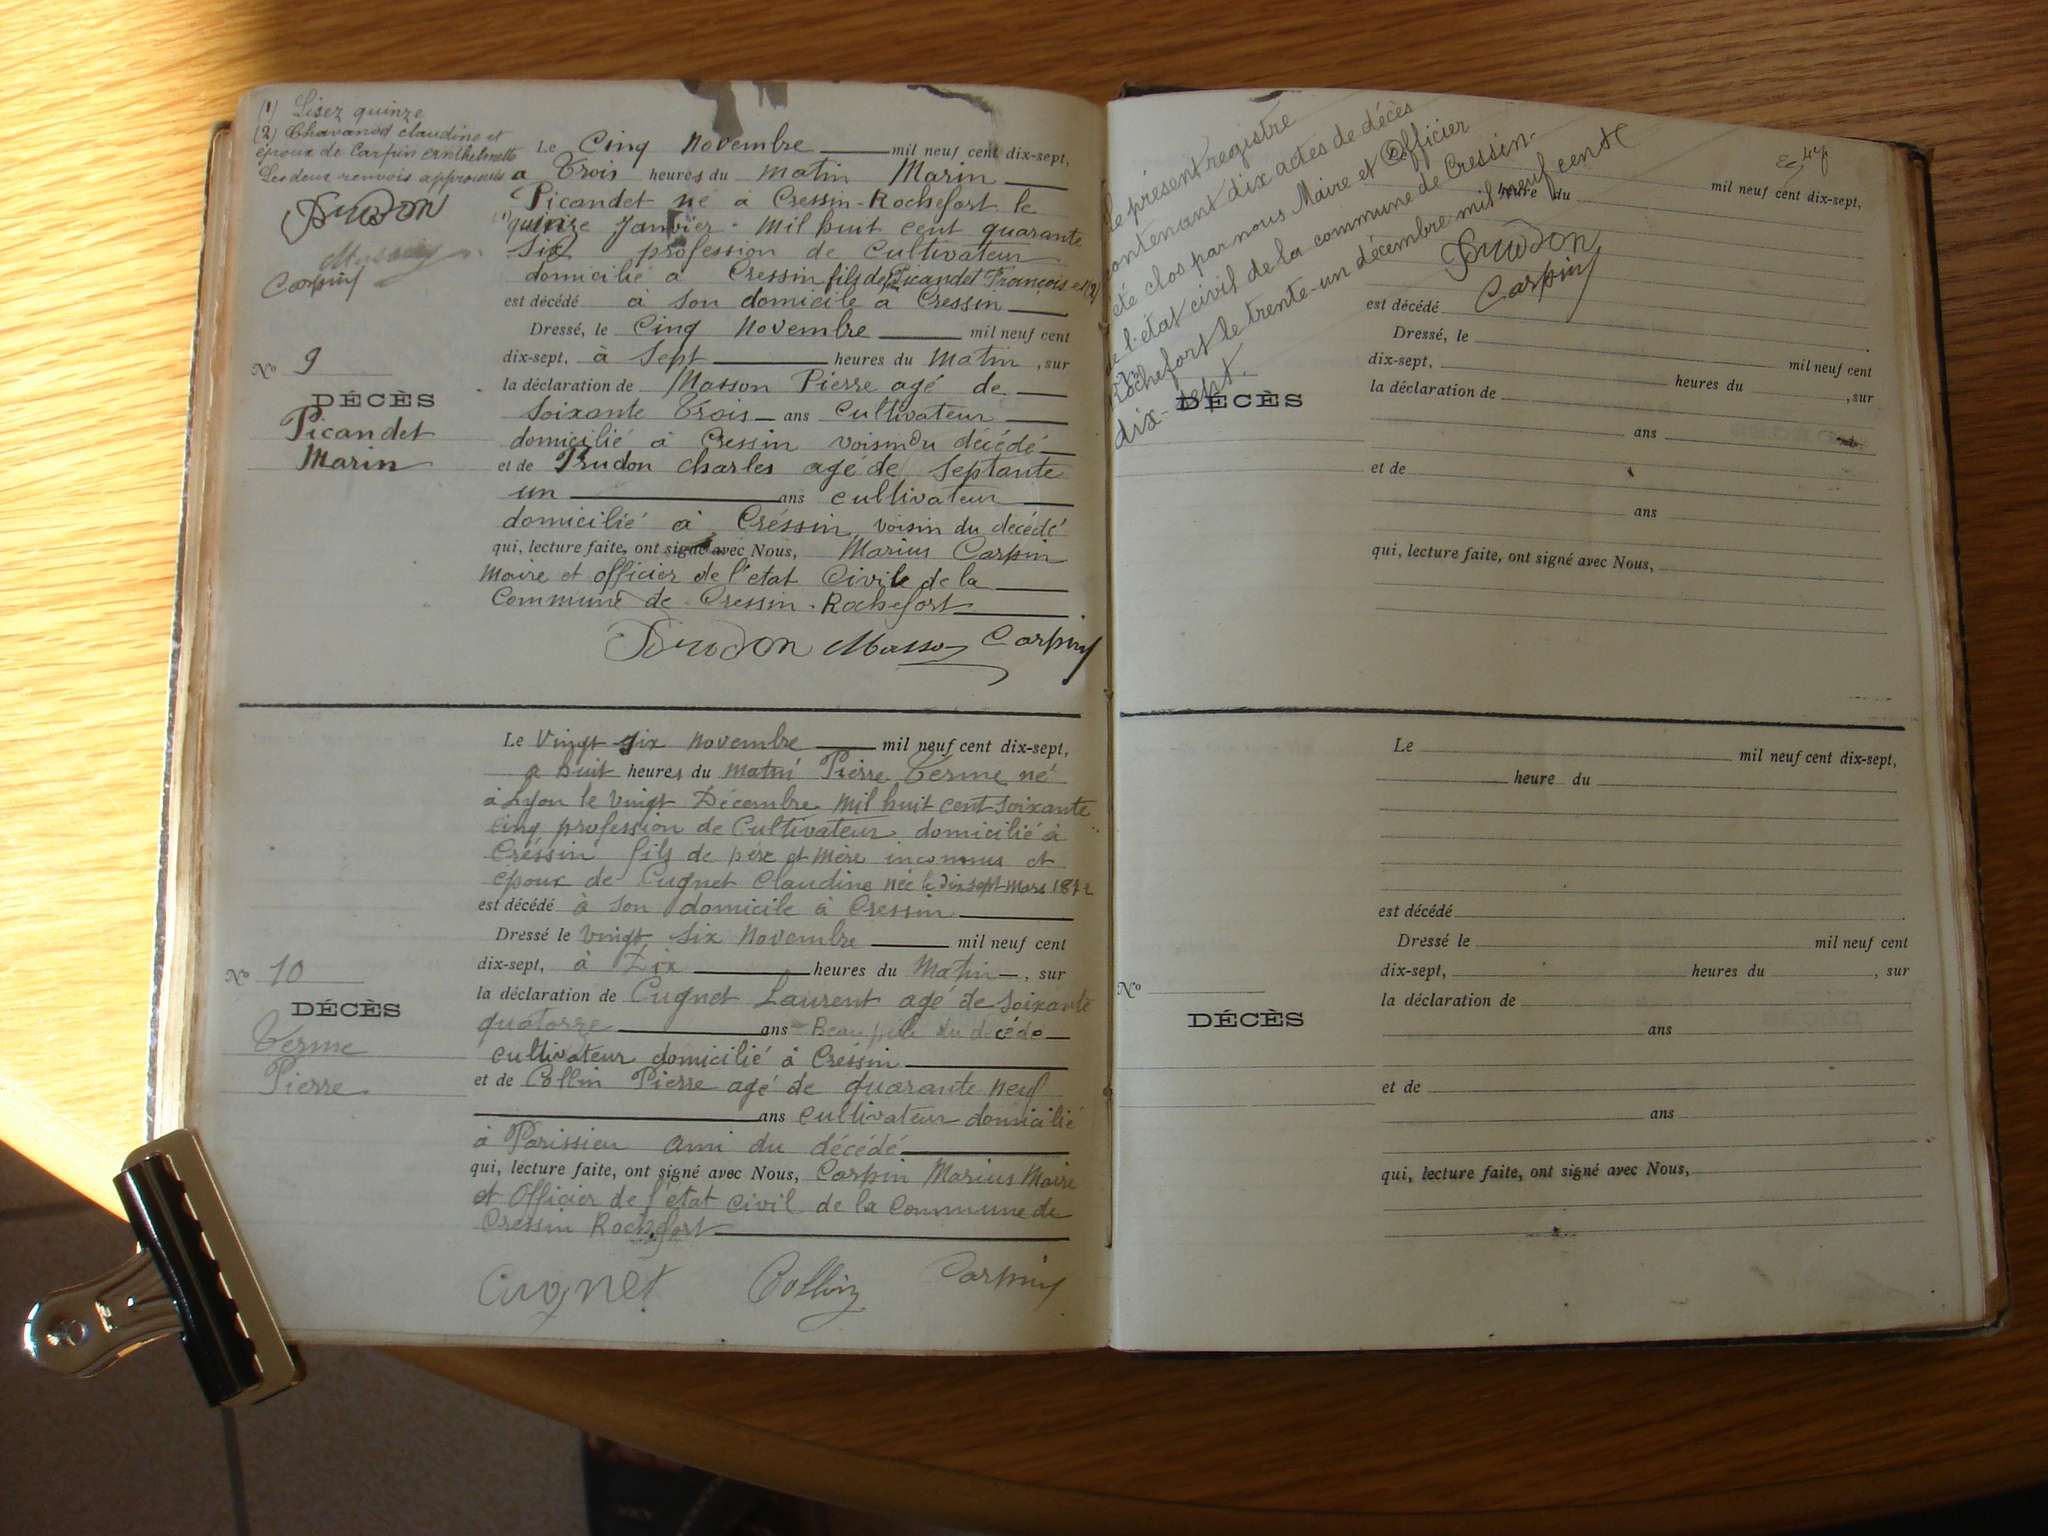 (1) Lisez quinze
(2) Chavanod claudine et
époux de Carpin Anthelmette
Les deux renvois approuvés
Prudon
Masson
Carpin
Le Cinq Novembre mil neuf cent dix-sept,
a Trois heures du matin Marin
Picandet né à Cressin-Rochefort le
(1) quinze Janvier mil huit cent quarante
Six profession de Cultivateur
domicilié à Cressin fils de Picandet François et (2)
est décédé à son domicile à Cressin
Dressé, le Cinq Novembre mil neuf cent
dix-sept, à Sept heures du Matin, sur
la déclaration de Masson Pierre agé de
Soixante Trois ans Cultivateur
domicilié à Cressin voisin du décédé
et de Prudon charles agé de Septante
un ans cultivateur
domicilié à Créssin voisin du décédé
qui, lecture faite, ont signé avec Nous, Marius Carpin
Maire et officier de l'etat Civile de la
Commune de Cressin-Rochefort
Prudon Masson Carpin
No 9
DÉCÈS
Picandet
Marin
Le Vingt Six Novembre mil neuf cent dix-sept,
a huit heures du matin Pierre Terme né
à Lyon le Vingt Décembre Mil huit cent Soixante
cinq profession de Cultivateur domicilié à
Créssin fils de pére et mère inconnus et
époux de Cugnet Claudine née le dix sept mars 1872
est décédé à son domicile à Cressin
Dressé le Vingt Six Novembre mil neuf cent
dix-sept, à Dix heures du Matin, sur
la déclaration de Cugnet Laurent agé de Soixante
quatorze ans Beau père du décédé
cultivateur domicilié à Créssin
et de Collin Pierre agé de quarante neuf
ans cultivateur domicilié
à Parissieu ami du décédé
qui, lecture faite, ont signé avec Nous, Carpin Marius Maire
et Officier de l'état Civil de la Commune de
Cressin Rochefort
Cugnet Collin Carpin
No 10
DÉCÈS
Terme
Pierre
Le présent registre
contenant dix actes de décès
été clos par nous Maire et Officier
de l'état civil de la commune de Cressin-
Rochefort le trente-un décembre mil neuf cent
dix-sept.
Prudon
Carpin
mil neuf cent dix-sept,
heure du
est décédé
Dressé, le mil neuf cent
dix-sept, heures du , sur
la déclaration de
ans
et de
ans
qui, lecture faite, ont signé avec Nous,
DÉCÈS
Le mil neuf cent dix-sept,
heure du
est décédé
Dressé le mil neuf cent
dix-sept, heures du , sur
la déclaration de
ans
et de
ans
qui, lecture faite, ont signé avec Nous,
No
DÉCÈS